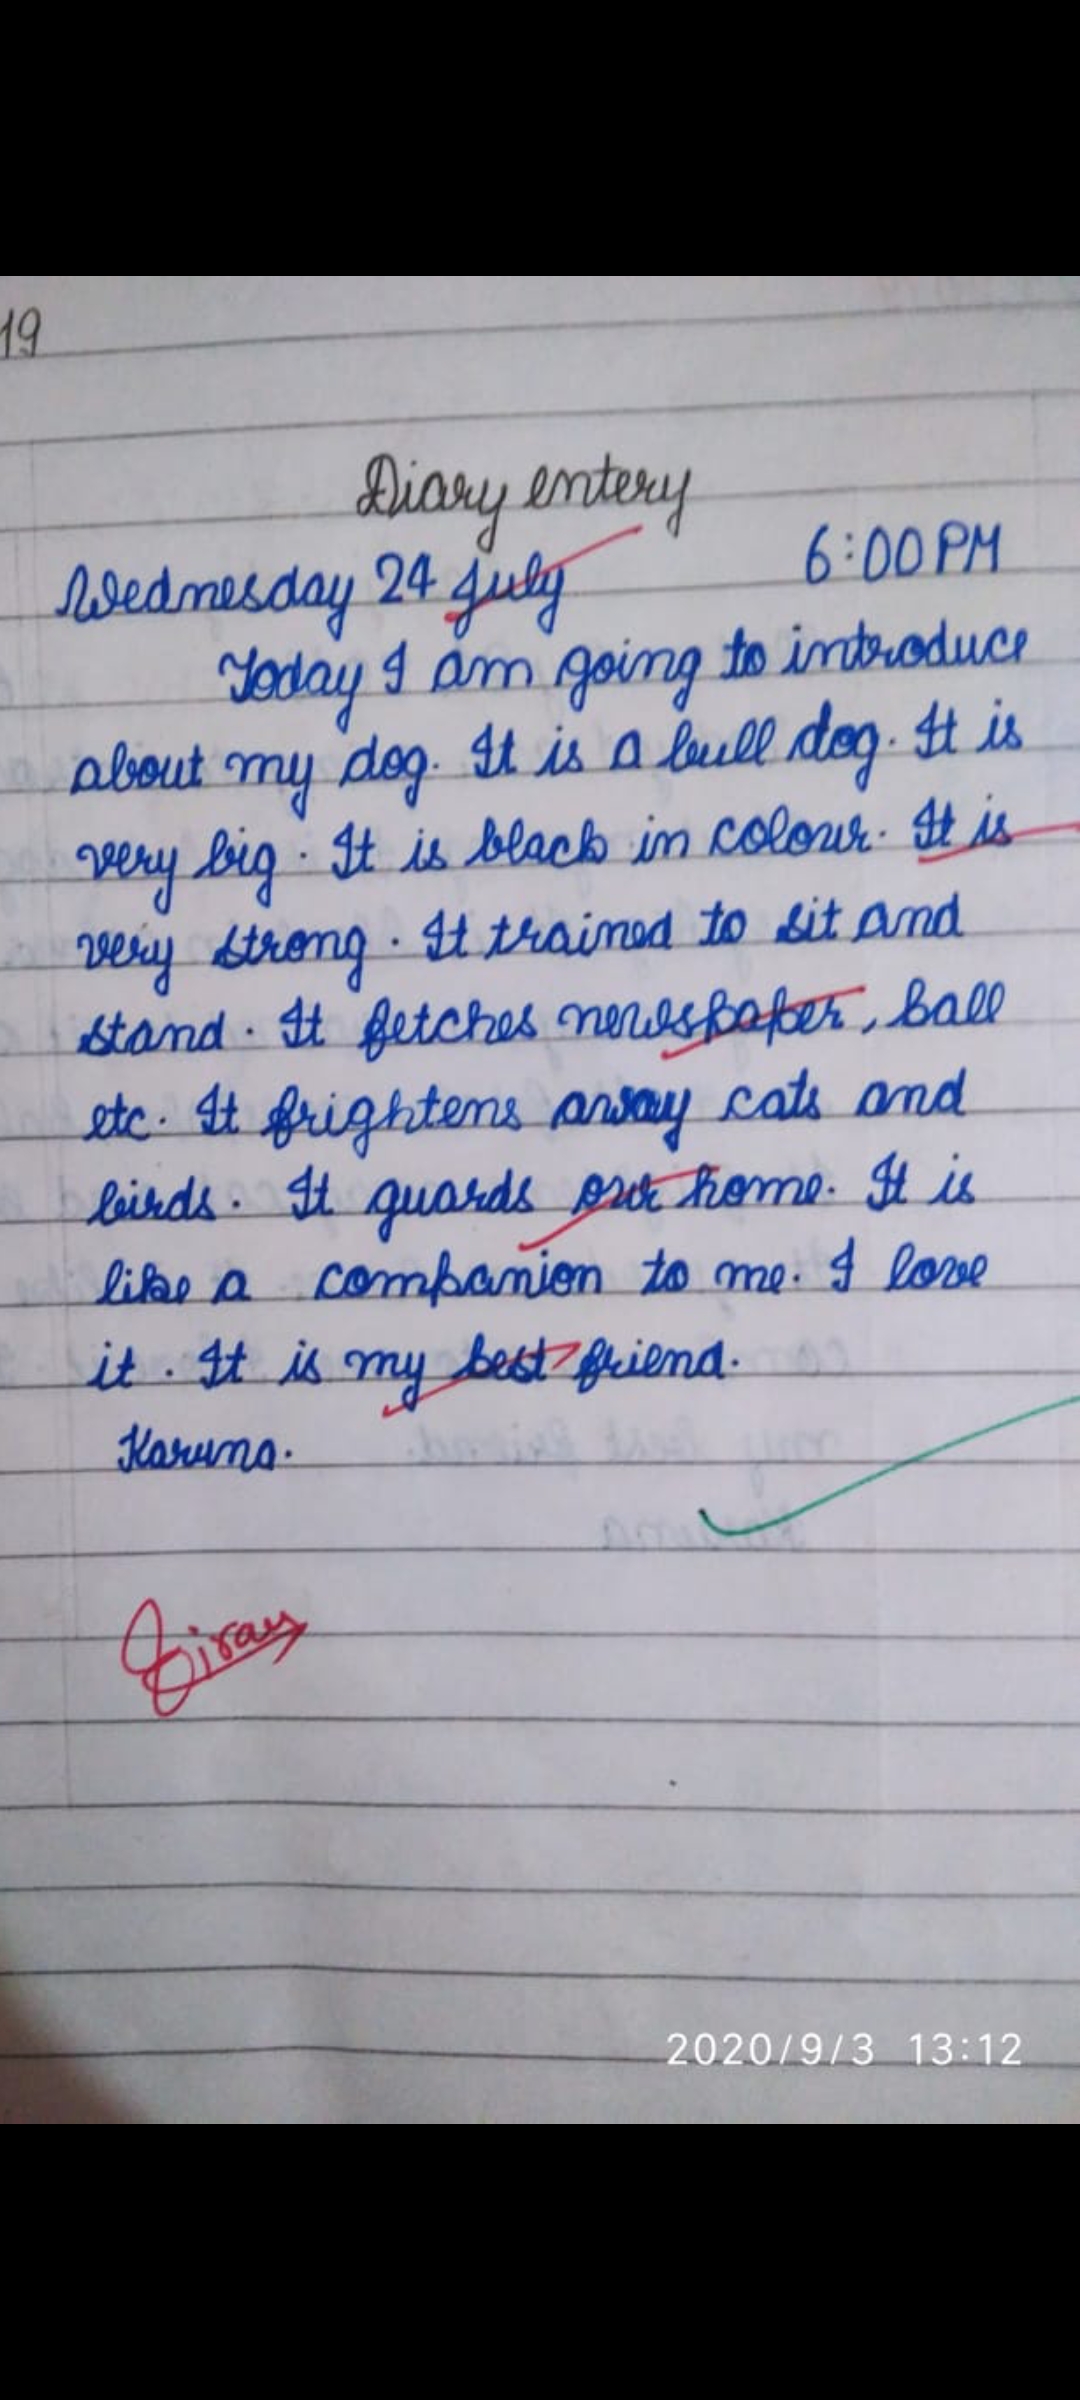 19
Diary entery
Wednesday 24 July 6:00PM
Today I am going to introduce
about my dog. It is a bull dog. It is
very big. It is black in colour. It is
very strong. It trained to sit and
stand. It fetches newspaper, ball
etc. It frightens away cats and
birds. It guards our home. It is
like a companion to me. I love
it. It is my best friend.
Karuna.
2020/9/3 13:12